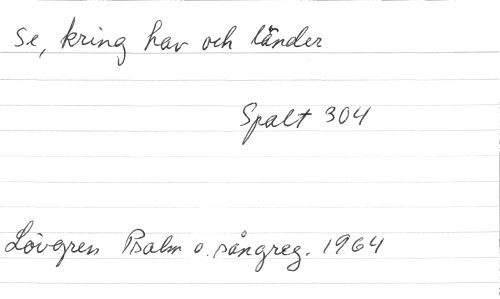 Se, kring hav och länder
Spalt 304
Lövgren Psalm o. sångreg. 1964